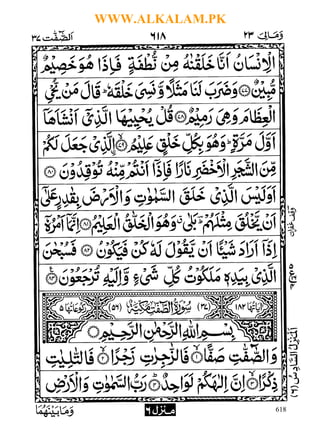 WWW.ALKALAM.PK
وَمَالِیَ ٢٣
٦١٨
الصّٰٓفّٰت ٣٧
الْاِنْسَانُ اَنَّا خَلَقْنٰهُ مِنْ نُّطْفَةٍ فَاِذَا هُوَ خَصِيْمٌ
مُّبِيْنٌ ﴿٧٧﴾ وَضَرَبَ لَنَا مَثَلًا وَّنَسِيَ خَلْقَهٗ ؕ قَالَ مَنْ يُّحْيِ
الْعِظَامَ وَهِيَ رَمِيْمٌ ﴿٧٨﴾ قُلْ يُحْيِيْهَا الَّذِيْٓ اَنْشَاَهَآ
اَوَّلَ مَرَّةٍ ؕ وَهُوَ بِكُلِّ خَلْقٍ عَلِيْمُ ﴿٧٩﴾ الَّذِيْ جَعَلَ لَكُمْ
مِّنَ الشَّجَرِ الْاَخْضَرِ نَارًا فَاِذَآ اَنْتُمْ مِّنْهُ تُوْقِدُوْنَ ﴿٨٠﴾
اَوَلَيْسَ الَّذِيْ خَلَقَ السَّمٰوٰتِ وَالْاَرْضَ بِقٰدِرٍ عَلٰٓى
اَنْ يَّخْلُقَ مِثْلَهُمْ ؕ بَلٰى ۗ وَهُوَ الْخَلّٰقُ الْعَلِيْمُ ﴿٨١﴾ اِنَّمَآ اَمْرُهٗٓ
اِذَآ اَرَادَ شَيْـًٔا اَنْ يَّقُوْلَ لَهٗ كُنْ فَيَكُوْنُ ﴿٨٢﴾ فَسُبْحٰنَ
الَّذِيْ بِيَدِهٖ مَلَكُوْتُ كُلِّ شَيْءٍ وَّاِلَيْهِ تُرْجَعُوْنَ ﴿٨٣﴾
اٰيَاتُهَا ١٨٢ (٣٧) سُوْرَةُ الصّٰٓفّٰتِ مَكِّيَّةٌ (٥٦) رُكُوْعَاتُهَا ٥
بِسْمِ اللّٰهِ الرَّحْمٰنِ الرَّحِيْمِ
وَالصّٰٓفّٰتِ صَفًّا ﴿١﴾ فَالزّٰجِرٰتِ زَجْرًا ﴿٢﴾ فَالتّٰلِيٰتِ
ذِكْرًا ﴿٣﴾ اِنَّ اِلٰهَكُمْ لَوَاحِدٌ ﴿٤﴾ رَبُّ السَّمٰوٰتِ وَالْاَرْضِ
وَمَا بَيْنَهُمَا
منزل ٦
618